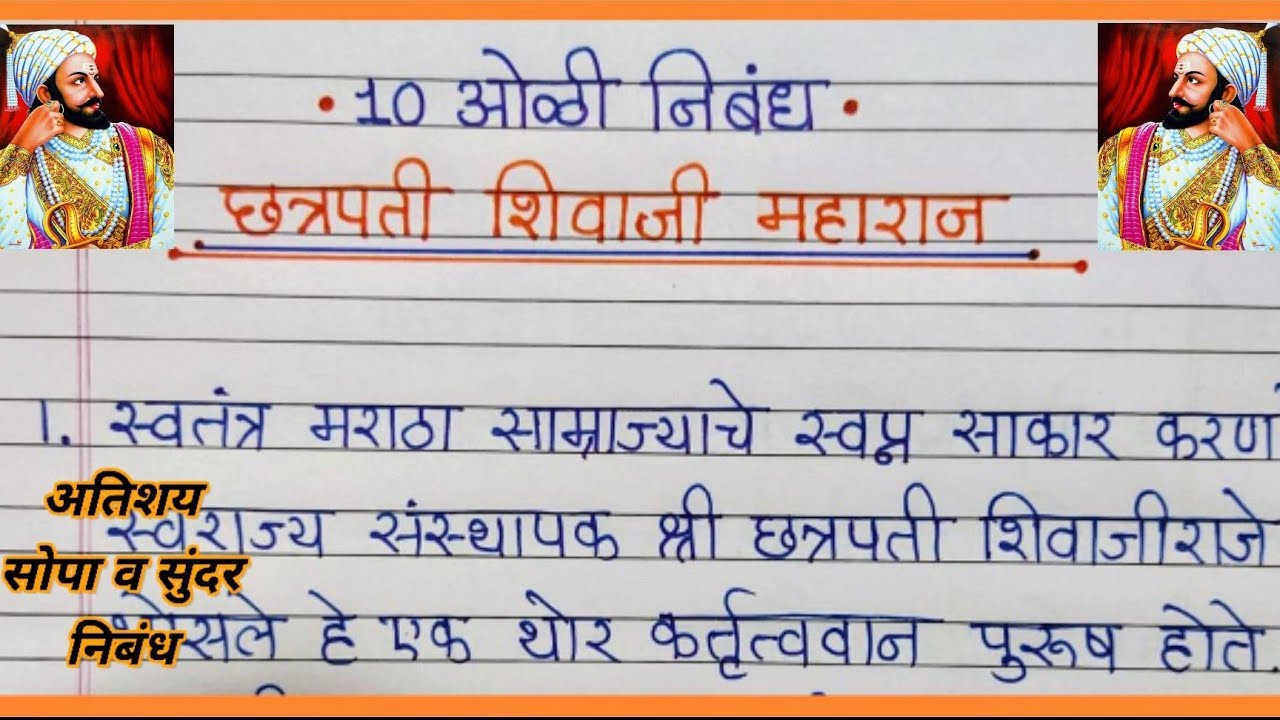 • 10 ओळी निबंध •
छत्रपती शिवाजी महाराज
1. स्वतंत्र मराठा साम्राज्याचे स्वप्न साकार
स्वराज्य संस्थापक श्री छत्रपती शिवाजीराजे
हे एक थोर कर्तृत्ववान पुरूष होते.
अतिशय
सोपा व सुंदर
निबंध